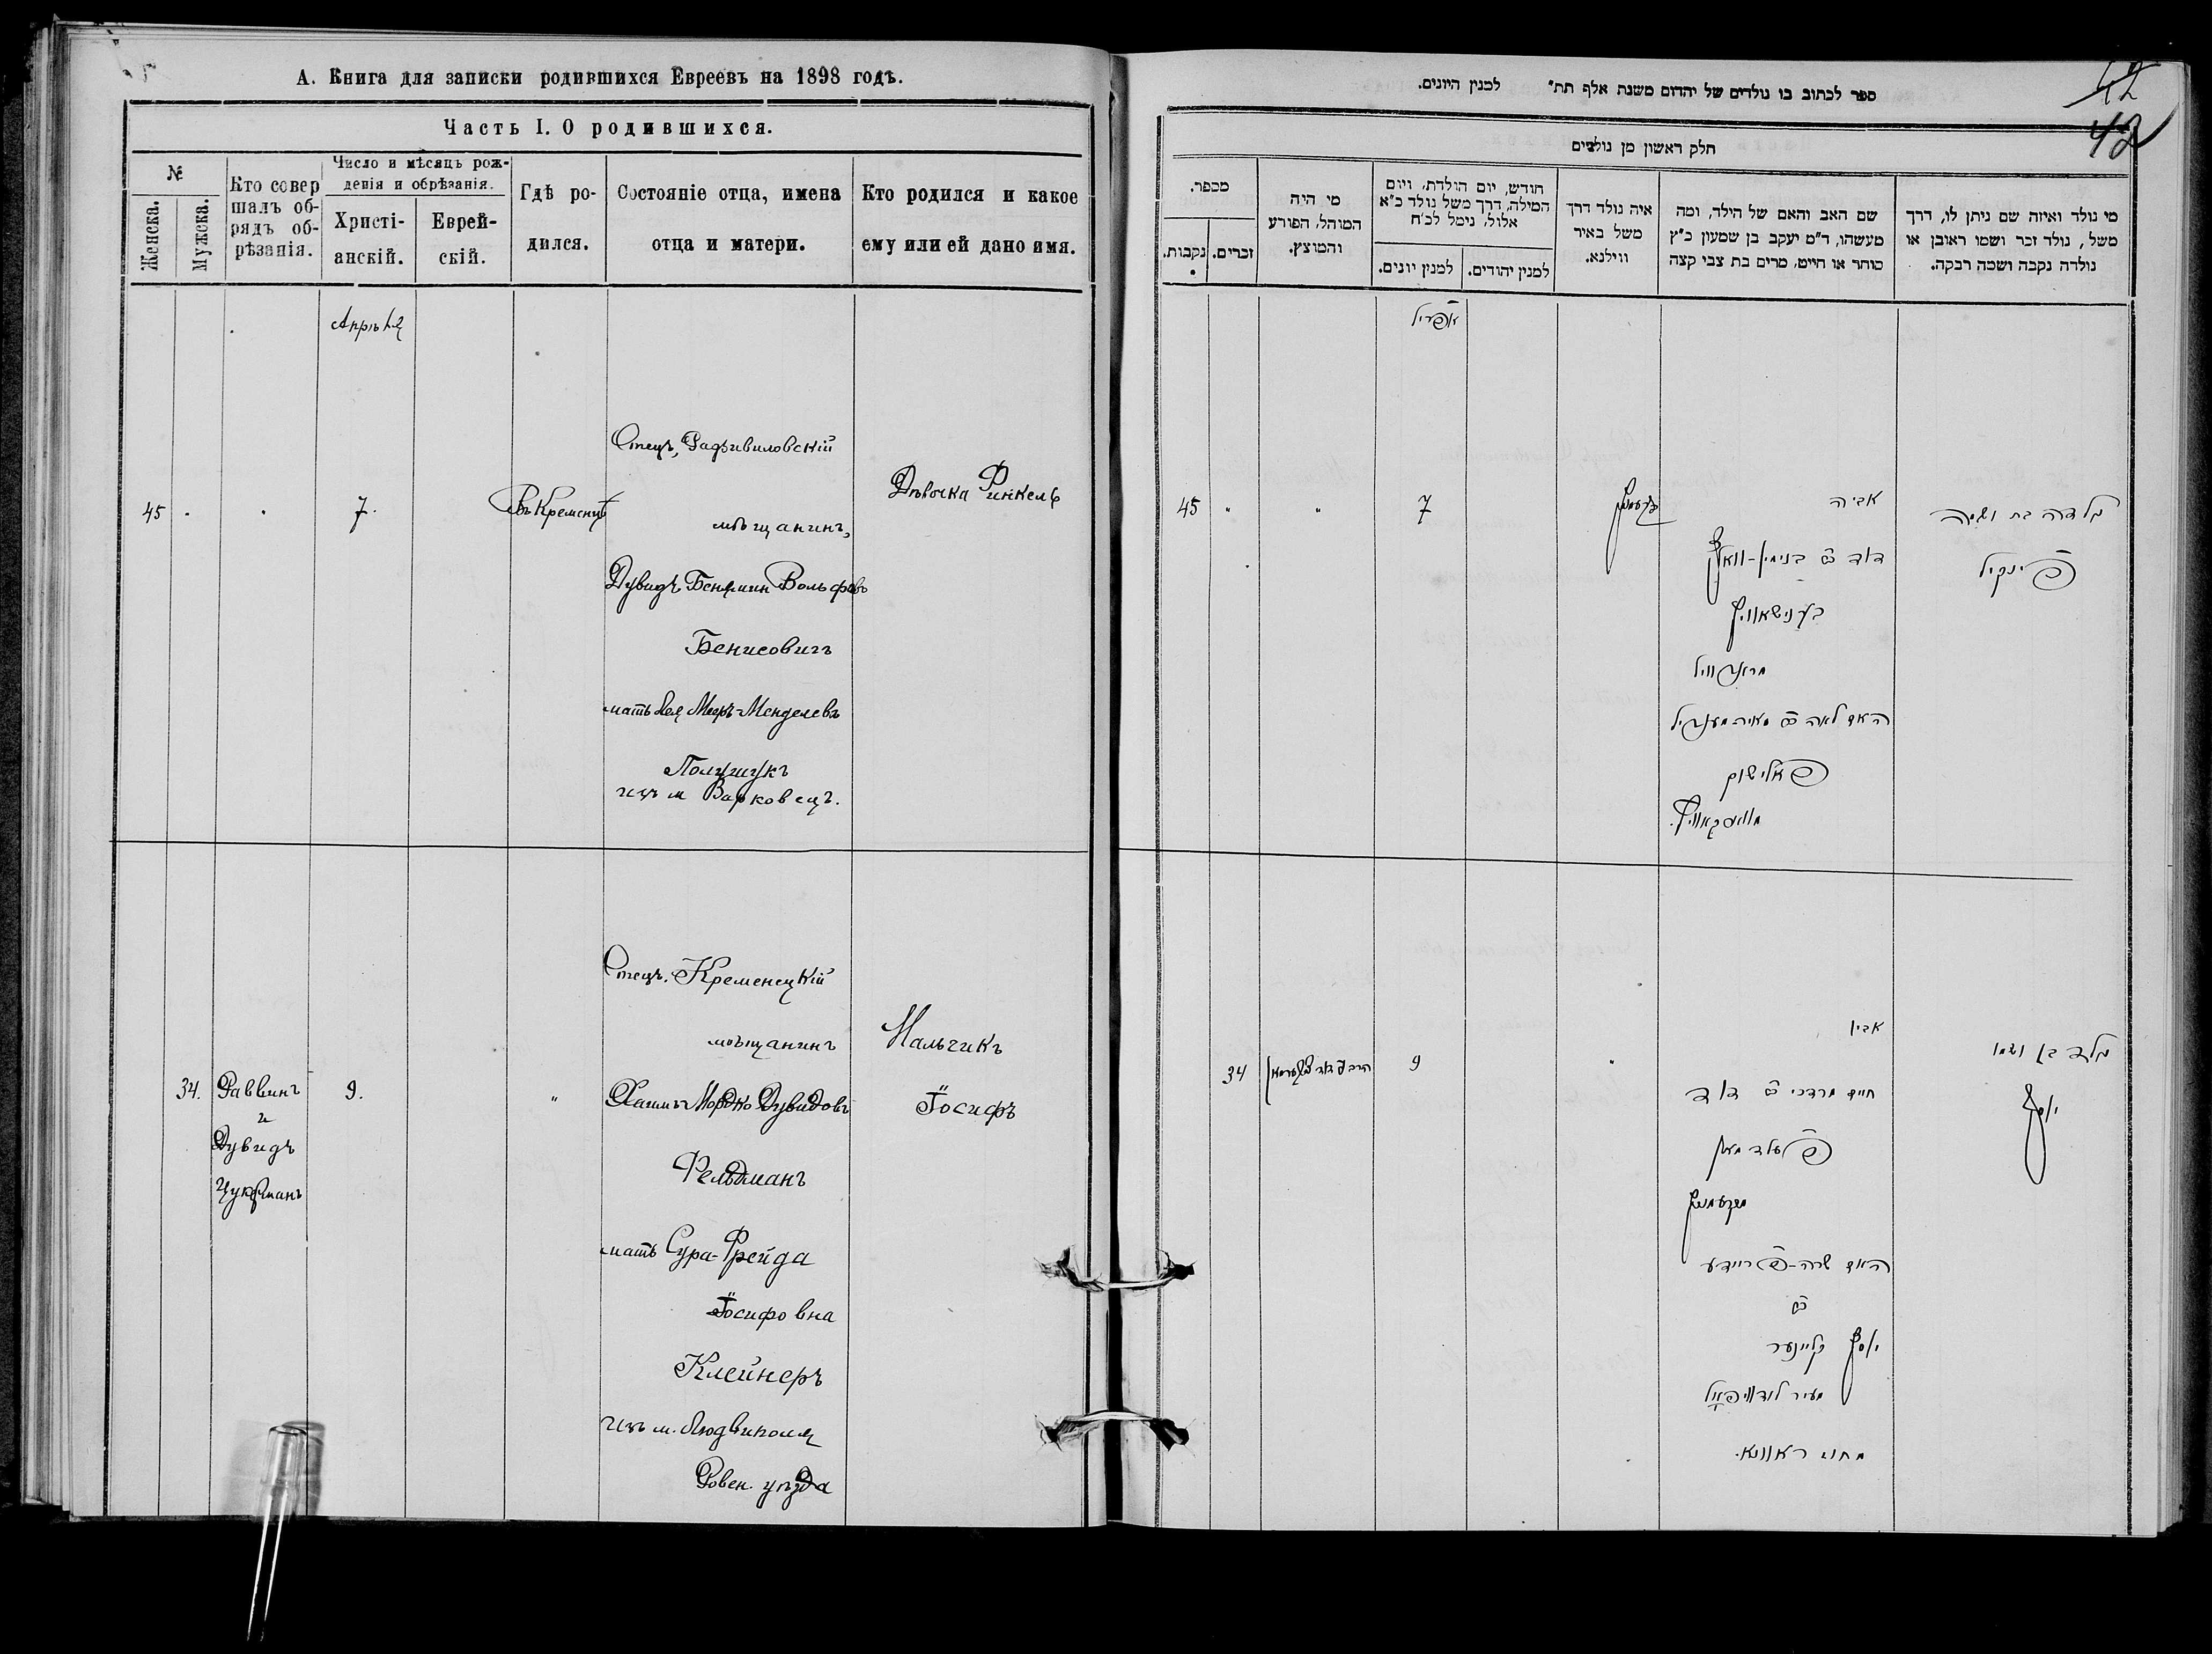 А. Книга для записки родившихся Евреевъ на 1898 годъ.
Часть I. О родившихся.
№
Женска.
Мужска.
Кто совер
шалъ об-
рядъ об-
рѣзанія.
Число и мѣсяцъ рож-
денія и обрѣзанія.
Христі-
анскій.
Еврей-
скій.
Гдѣ ро-
дился.
Состояніе отца, имена
отца и матери.
Кто родился и какое
ему или ей дано имя.
Апрѣль
45
7.
Въ Кременцѣ
Отецъ, Радзивиловскій
мѣщанинъ,
Дувидъ Беніамин Вольфовъ
Бенисовичъ
мать Лея Меер-Менделевъ
Полищукъ
изъ м Варковецъ.
Дѣвочка Финкель
34.
Раввинъ
и
Дувидъ
Цукерманъ
9.
"
Отецъ. Кременецкій
мѣщанинъ
Хаимъ Мордко Дувидовъ
Фельдманъ
мать Сура-Фрейда
Іосифовна
Клейнеръ
изъ м. Людвиполя
Ровен. уѣзда
Мальчикъ
Іосифъ
ספר לכתוב בו נולדים של יהדום משנת אלף תת״ למנין היונים.
42
42
חלק ראשון מן נולדים
מי נולד ואיזה שם ניתן לו, דרך
משל, נולד זכר ושמו ראובן או
נולדה נקבה ושמה רבקה.
שם האב והאם של הילד, ומה
מעשהו, ד״מ יעקב בן שמעון כ״ץ
סוחר או חייט, מרים בת צבי קצה
איה נולד דרך
משל באיר
ווילנא.
חודש, יום הולדת, ויום
המילה, דרך משל נולד כ״א
אלול, נימל לכ״ח
למנין יהודים.
למנין יונים.
מי היה
המוהל, הפורע
והמוצץ.
מספר.
זכרים.
נקבות.
אפריל
ילדה בת ושמה
פינקיל
אביה
דוד ב״ר בנימין-וואלף
בענישאוויץ
מראדזוויל
האם לאה ב״ר מאיר מענדיל
פאלישוק
מווארקאוויץ.
7
"
"
45
ילד בן ושמו
יוסף
אביו
חיים מרדכי ב״ר דוד
פעלדמאן
מקרעמניץ
האם שרה-פריידע
ב״ר
יוסף קליינער
מעיר לודוויפאל
מחוז ראוונא.
"
9
34